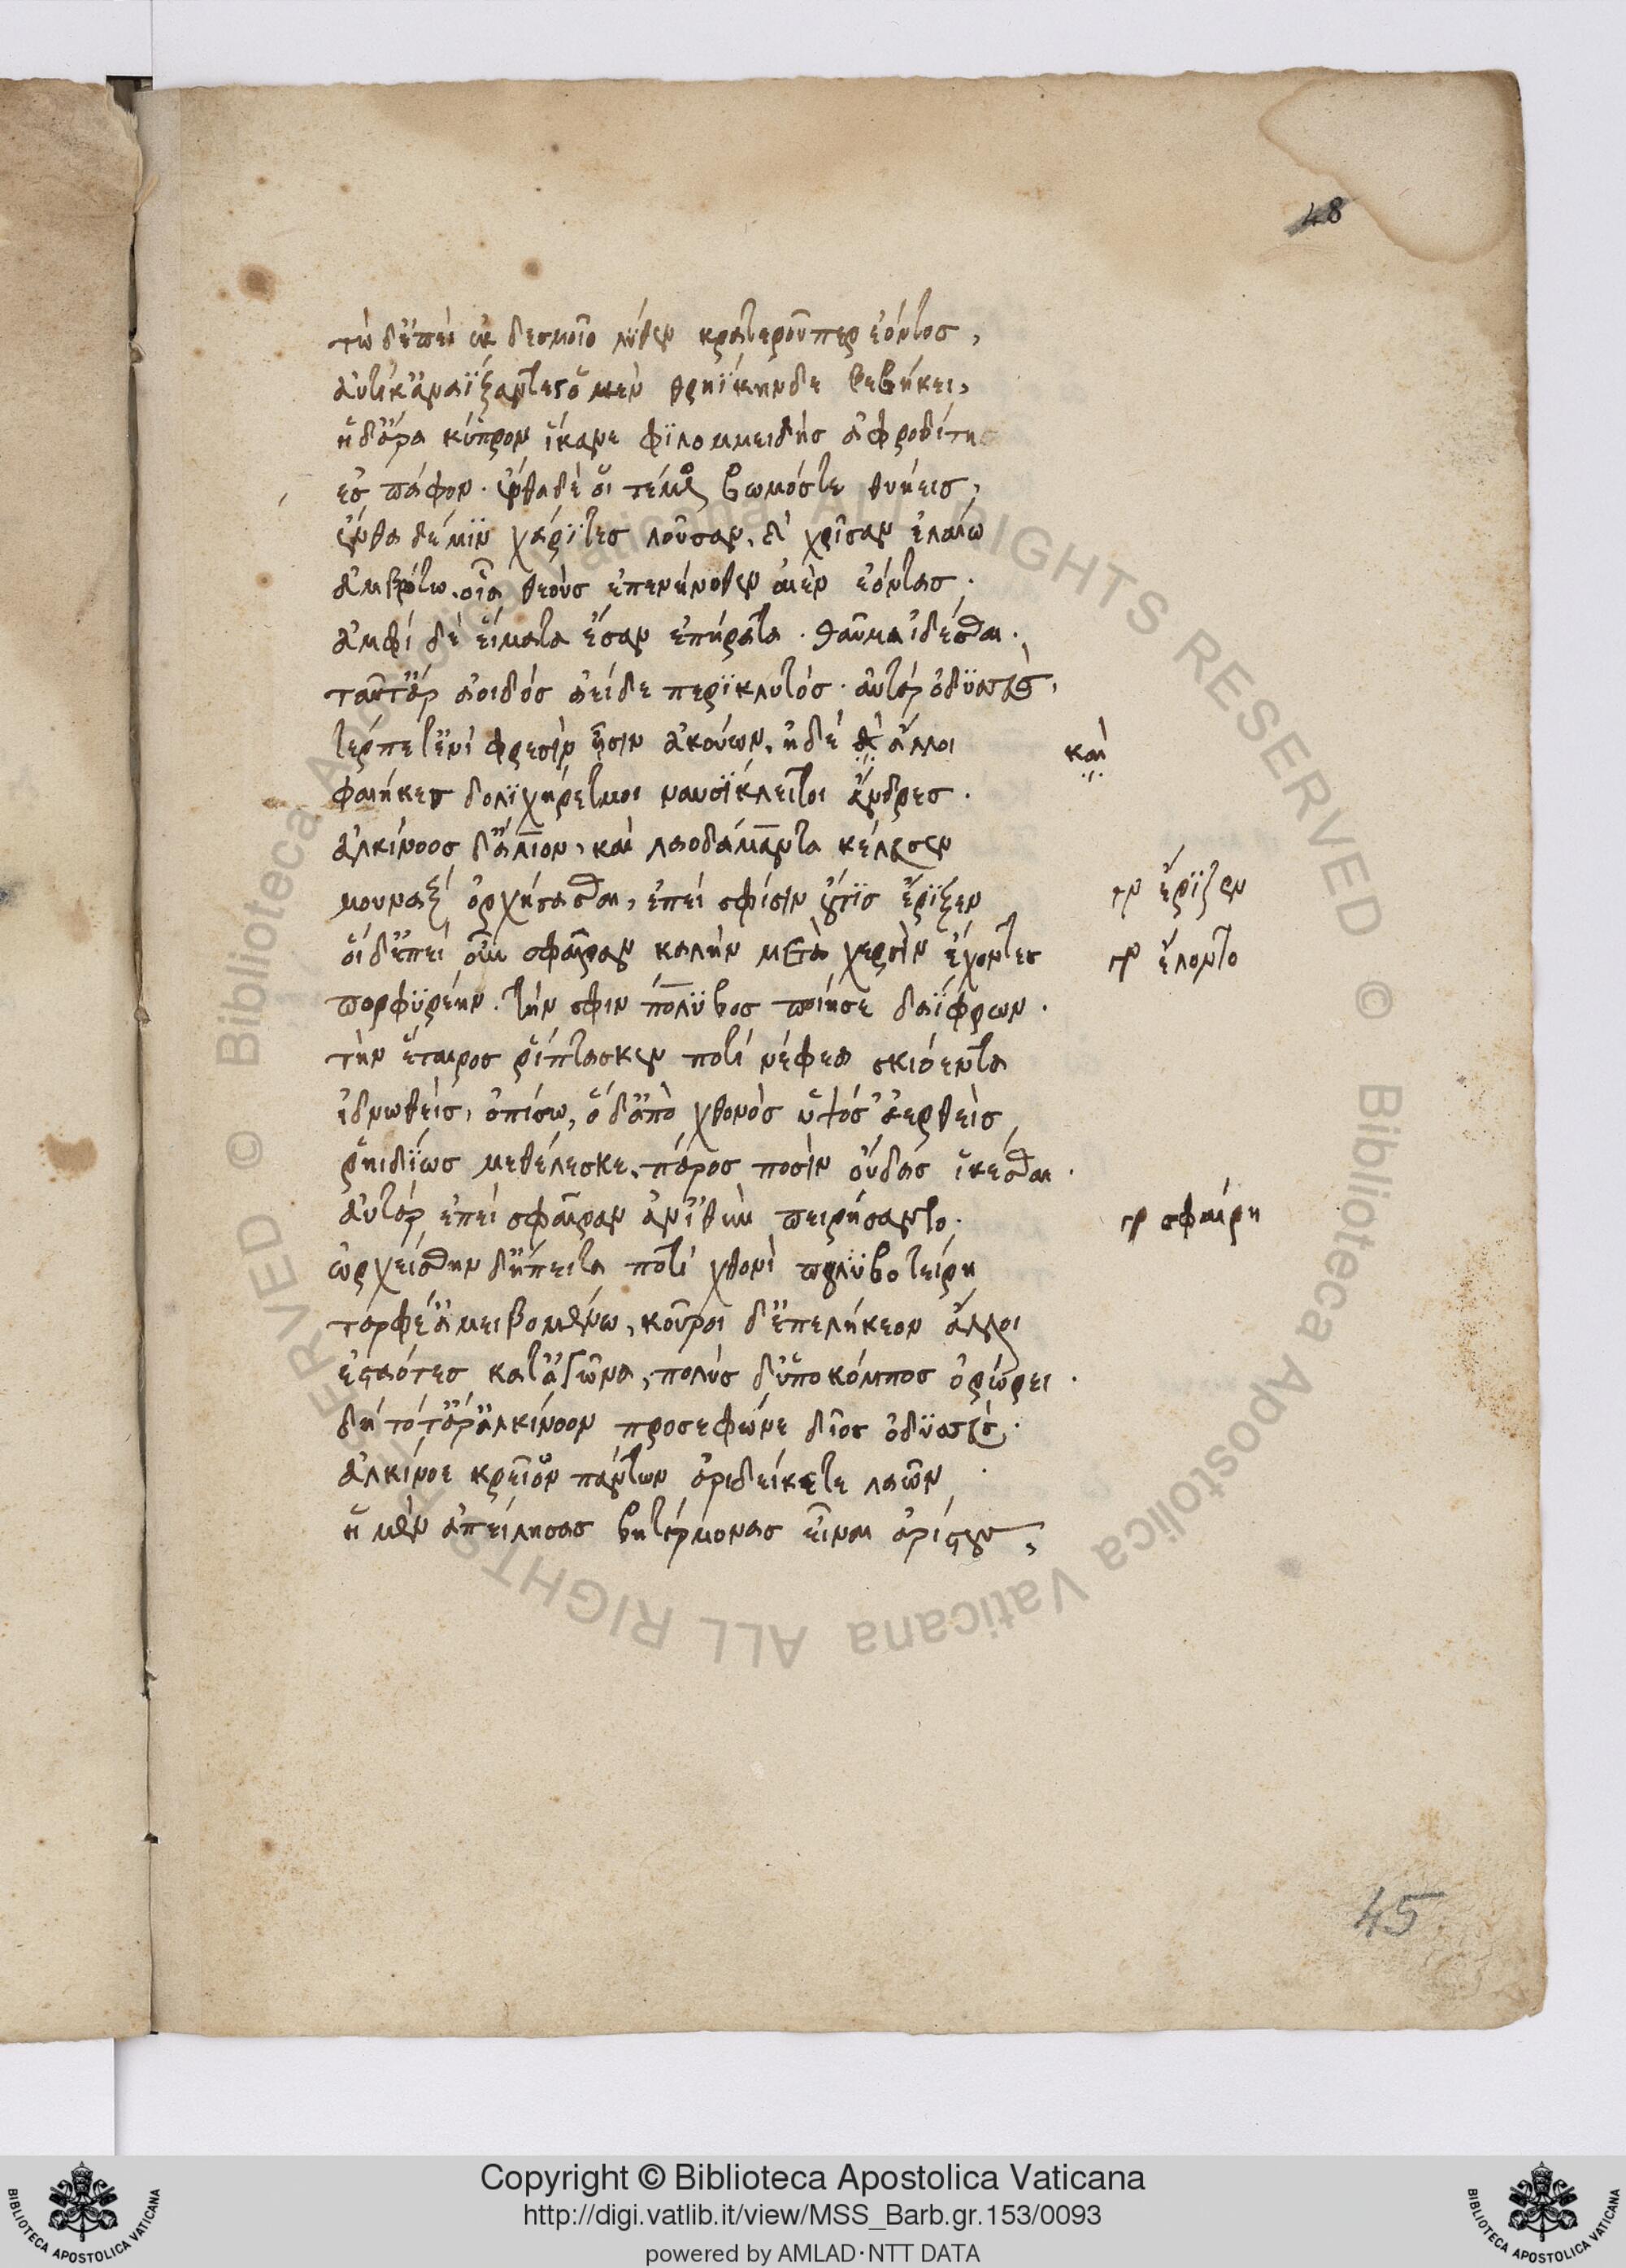 48
τὼ δ' ἐπεὶ ἐκ δεσμοῖο λύθεν κρατεροῦ περ ἐόντος,
αὐτίκ' ἀναΐξαντες ὁ μὲν θρηΐκηνδε βεβήκει,
ἡ δ' ἄρα κύπρον ἵκανε φϊλομμειδὴς ἀφροδίτη
ἐς πάφον. ἔνθα δέ οἱ τέμενος βωμός τε θυήεις,
ἔνθα δέ μϊν χάρϊτες λοῦσαν, καὶ χρῖσαν ἐλαίω
ἀμβρότω, οἷα θεοὺς ἐπενήνοθεν αἰὲν ἐόντας.
ἀμφὶ δὲ εἵματα ἕσαν ἐπήρατα. θαῦμα ἰδέσθαι.
ταῦτ' ἄρ ἀοιδὸς ἀείδε περϊκλυτός. αὐτὰρ ὀδϋσσεὺς,
τέρπετ' ἐνὶ φρεσὶν ᾗσιν ἀκούων, ἠδὲ καὶ ἄλλοι
καὶ
φαίηκες δολϊχήρετμοι ναυσϊκλειτοι ἄνδρες.
ἀλκίνοος δ' ἅλιον, καὶ λαοδάμαντα κέλευσεν
μουνὰξ ὀρχήσασθαι, ἐπεὶ σφίσιν οὔτϊς ἔρϊξεν
γρ ἔρϊζεν
οἱ δ' ἐπεὶ οὖν σφαῖραν καλὴν μετὰ χερσὶν ἔχοντες
γρ ἕλοντο
πορφϋρέην. τήν σφιν πόλϋβος ποίησε δαΐφρων.
τὴν ἕταιρος ῥίπτασκεν ποτὶ νέφεα σκιόεντα
ἰδνωθεὶς, ὀπίσω, ὁ δ' ἀπὸ χθονὸς ὑψόσ' ἀερθεὶς
ῥηιδΐως μεθέλεσκε, πάρος ποσὶν οὖδας ἱκέσθαι.
αὐτὰρ ἐπεὶ σφαῖραν ἀν' ἰθὺν πειρήσαντο.
γρ σφαίρη
ὠρχείσθην δ' ἤπειτα ποτὶ χθονὶ πουλϋβοτείρη
ταρφέ' ἀμειβομένω, κοῦροι δ' ἐπελήκεον ἄλλοι
ἑσταότες κατ' ἀγῶνα, πολὺς δ' ὑπο κόμπος ὀρώρει.
δὴ τότ' ἄρ' ἀλκίνοον προσεφώνε δῖος ὀδϋσσεύς.
ἀλκίνοε κρεῖον πάντων ἀριδείκετε λαῶν.
ἦ μὲν ἀπείλησας βητάρμονας εἶναι ἀρίστους,
45
© Biblioteca Apostolica Vaticana ALL RIGHTS RESERVED © Biblioteca Apostolica Vaticana ALL RIGHTS RESERVED
Copyright © Biblioteca Apostolica Vaticana
http://digi.vatlib.it/view/MSS_Barb.gr.153/0093
powered by AMLAD·NTT DATA
BIBLIOTECA APOSTOLICA VATICANA
BIBLIOTECA APOSTOLICA VATICANA